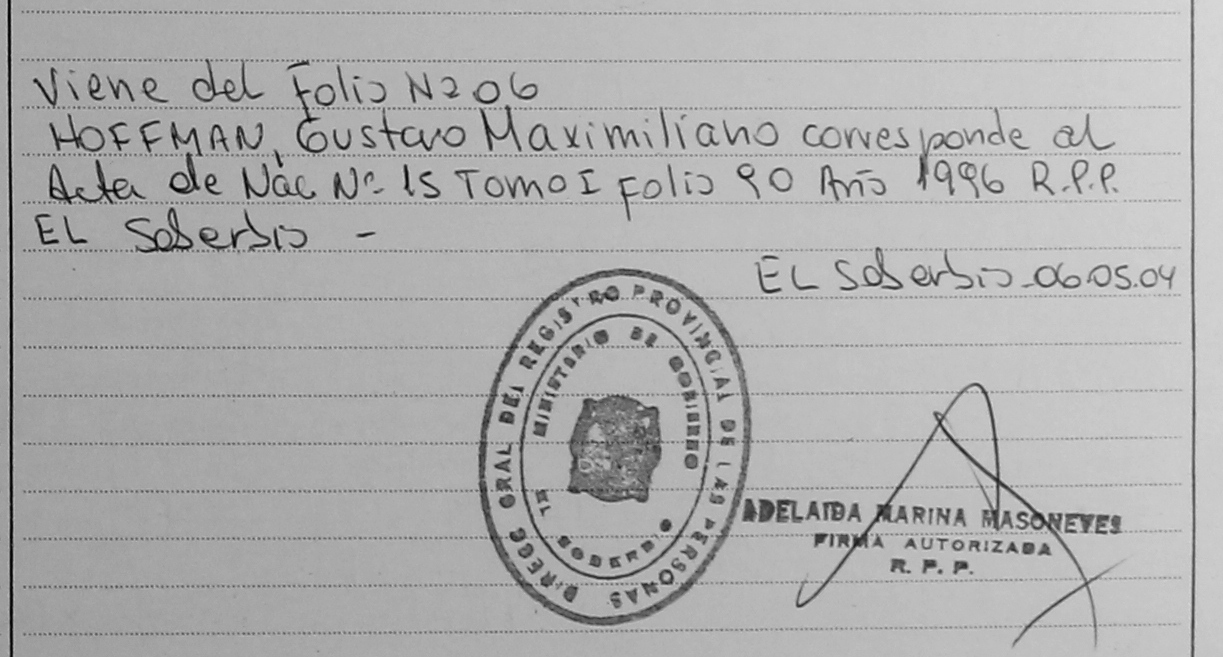 Viene del Folio Nº 06
HOFFMAN, Gustavo Maximiliano corresponde al
Acta de Nac Nº 15 Tomo I Folio 90 Año 1996 R.P.P.
EL Soberbio -
EL Soberbio - 06.05.04
DIRECC GRAL DEL REGISTRO PROVINCIAL DE LAS PERSONAS
MINISTERIO DE GOBIERNO
EL SOBERBIO
ADELAIDA MARINA MASONEYES
FIRMA AUTORIZADA
R. P. P.